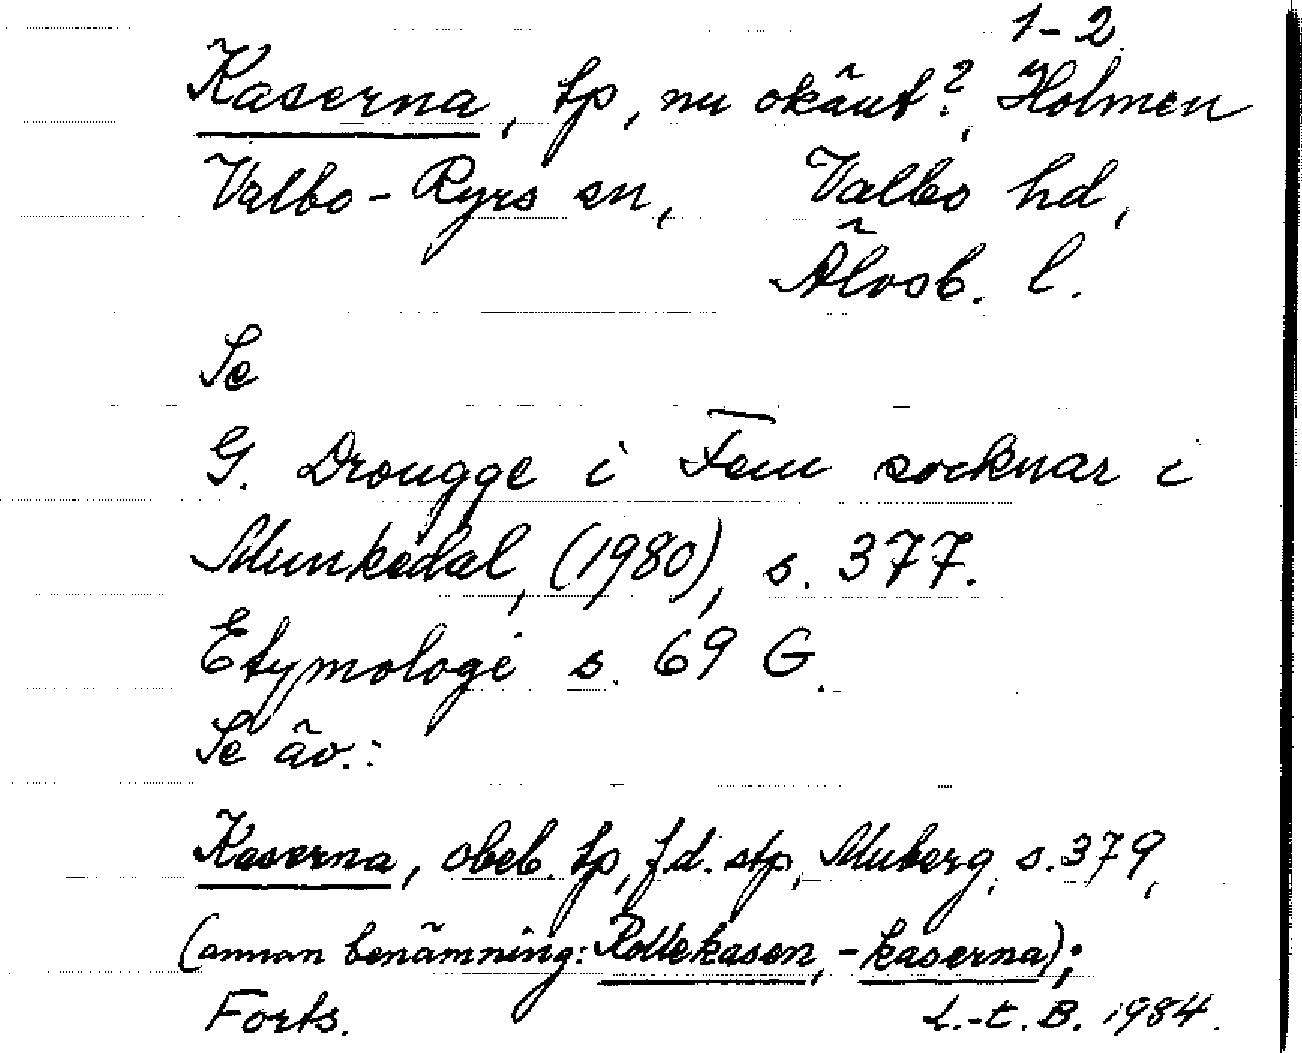 1-2
Kaserna, tp, nu okänt?, Holmen
Valbo-Ryrs sn, Valbo hd,
Älvsb. l.
Se
G. Drougge i Fem socknar i
Munkedal, (1980), s. 377.
Etymologi s. 69 G.
Se äv.:
Kaserna, obeb. tp, f.d. stp, Muberg, s. 379,
(annan benämning: Rottekasen, -kaserna);
Forts. L.-E. B. 1984.